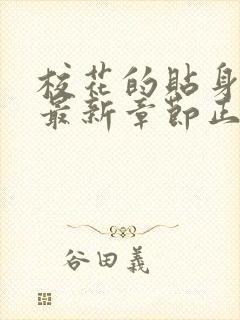 校花的贴身
最新章节正
谷田義